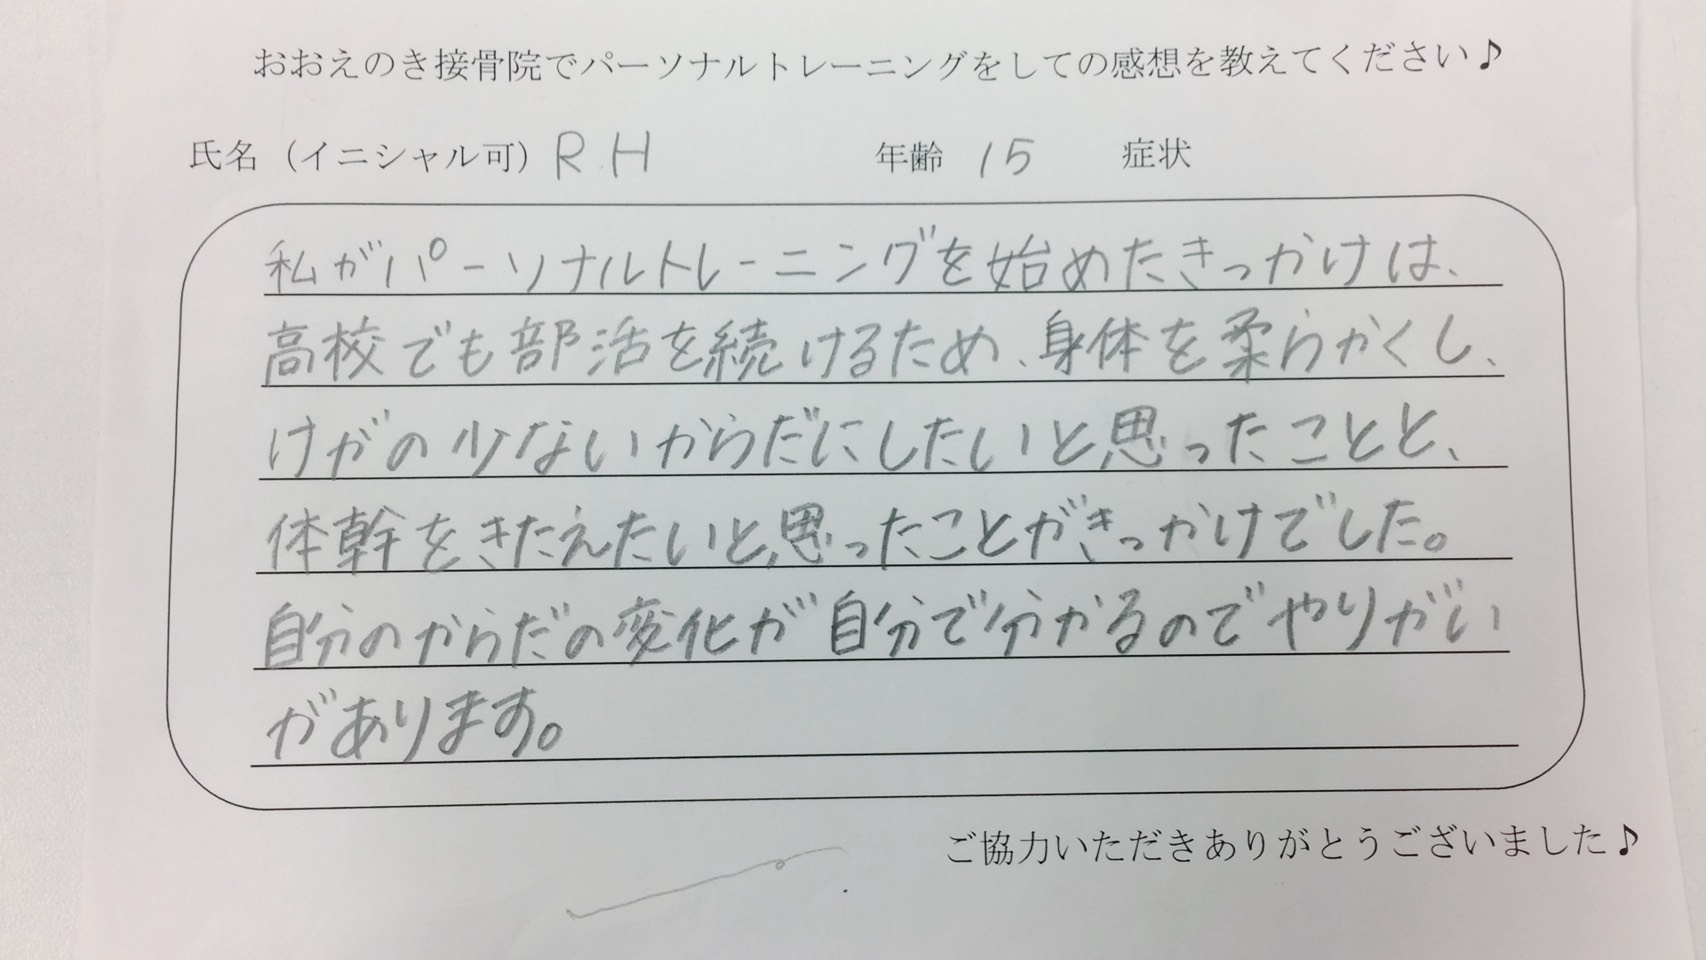 おおえのき接骨院でパーソナルトレーニングをしての感想を教えてください♪
氏名（イニシャル可）R.H 年齢 15 症状
私がパーソナルトレーニングを始めたきっかけは、
高校でも部活を続けるため、身体を柔らかくし、
けがの少ないからだにしたいと思ったことと、
体幹をきたえたいと思ったことがきっかけでした。
自分のからだの変化が自分で分かるのでやりがい
があります。
ご協力いただきありがとうございました♪